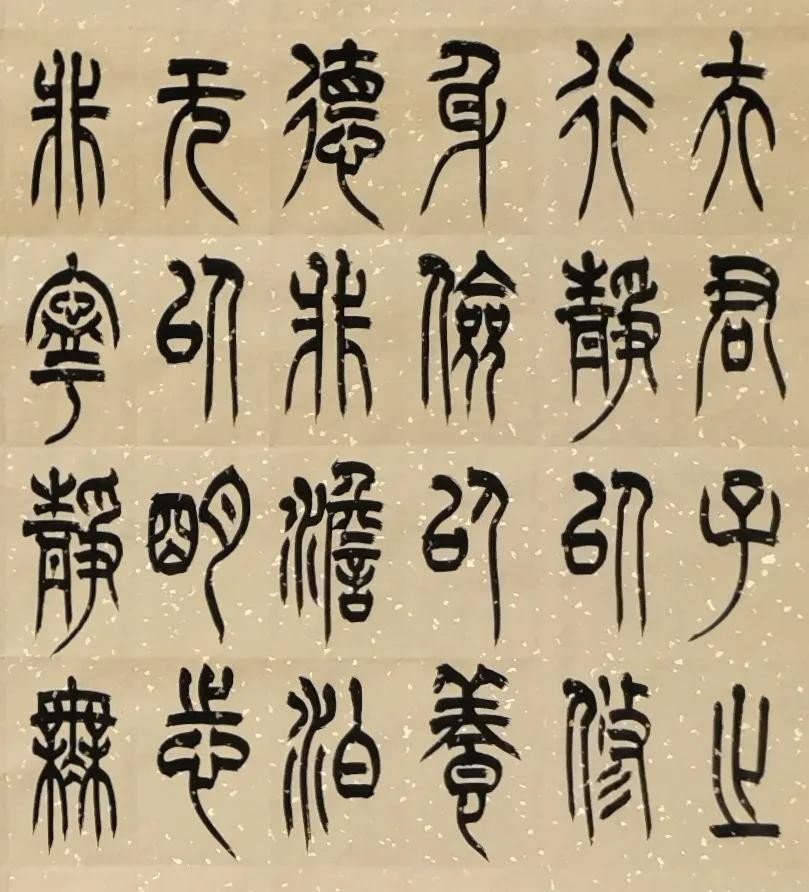 夫君子之
行靜以修
身儉以養
德非澹泊
无以明志
非寧靜無